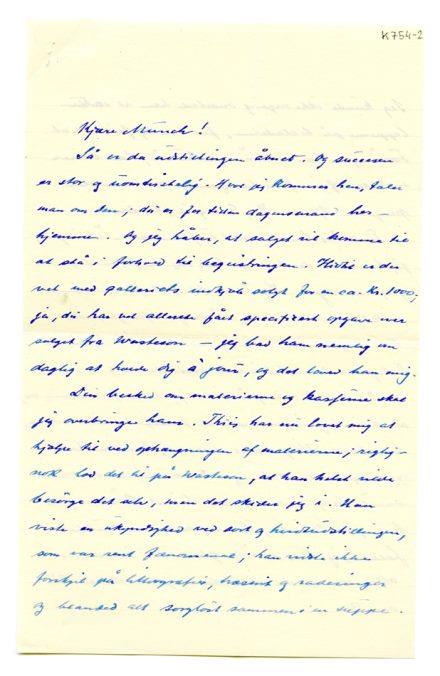 K754-2
Kjære Munch!
Så er da udstillingen åbnet. Og succesen
er stor og uomtvistelig. Hvor jeg kommer hen, taler
man om den; du er for tiden dagens mand her
hjemme. Og jeg håber, at salget vil komme til
at stå i forhold til begeistringen. Hidtil er der
vel med galleriets indkjøb solgt for en ca. Kr. 1000;
ja, du har vel allerede fået specificert opgave over
salget fra Wasteson – jeg bad ham nemlig om
daglig at holde dig à jour, og det lovet han mig.
Din besked om malerierne og kasserne skal
jeg overbringe ham. Thiis har nu lovet mig at
hjælpe til ved ophængningen af malerierne; rigtig-
nok lod det til på Wasteson, at han helst vilde
besørge det selv, men det skider jeg i. Han
viste en ukyndighed ved sort og hvidtudstillingen,
som var rent fænomenal; han vidste ikke
forskjel på lithografier, træsnit og raderinger
og blanded alt sorgløst sammen i en suppe.